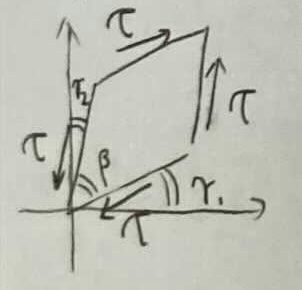 τ
γ₂
τ
τ
β
γ₁
τ